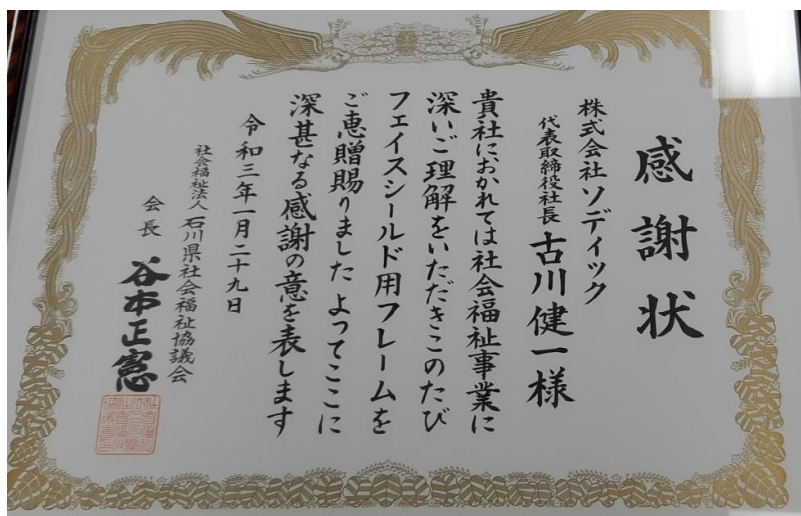 感謝状
株式会社ソディック
代表取締役社長 古川健一様
貴社におかれては社会福祉事業に
深いご理解をいただきこのたび
フェイスシールド用フレームを
ご恵贈賜りました よってここに
深甚なる感謝の意を表します
令和三年一月二十九日
社会福祉法人 石川県社会福祉協議会
会長 谷本正憲